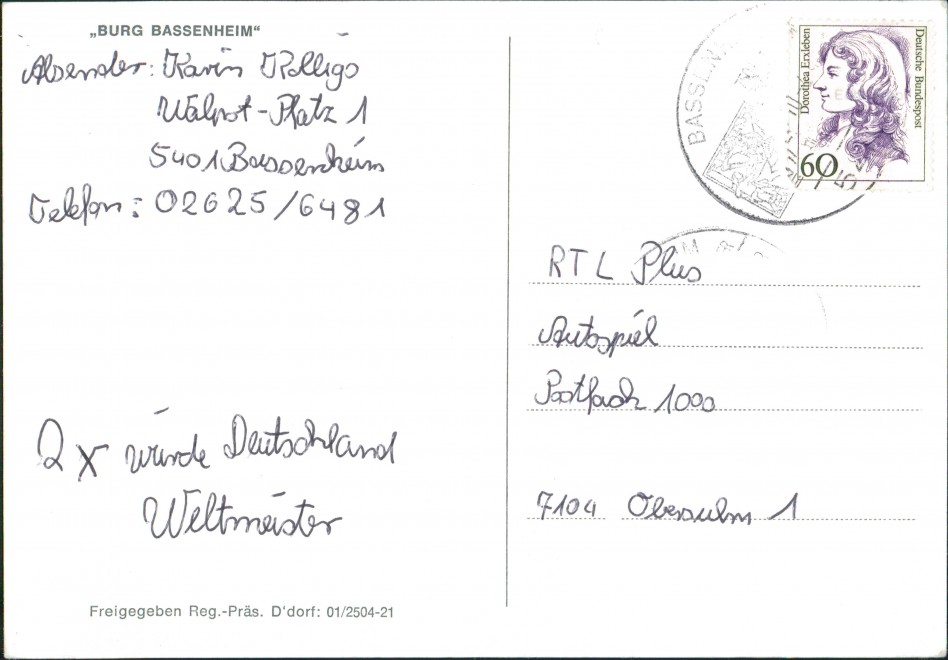 „BURG BASSENHEIM“
Absender: Karin Kolligs
Walpot-Platz 1
5401 Bassenheim
Telefon: 02625/6481
2 x würde Deutschland
Weltmeister
Freigegeben Reg.-Präs. D'dorf: 01/2504-21
Dorothea Erxleben
Deutsche Bundespost
60
RTL Plus
Autospiel
Postfach 1000
7104 Obersulm 1